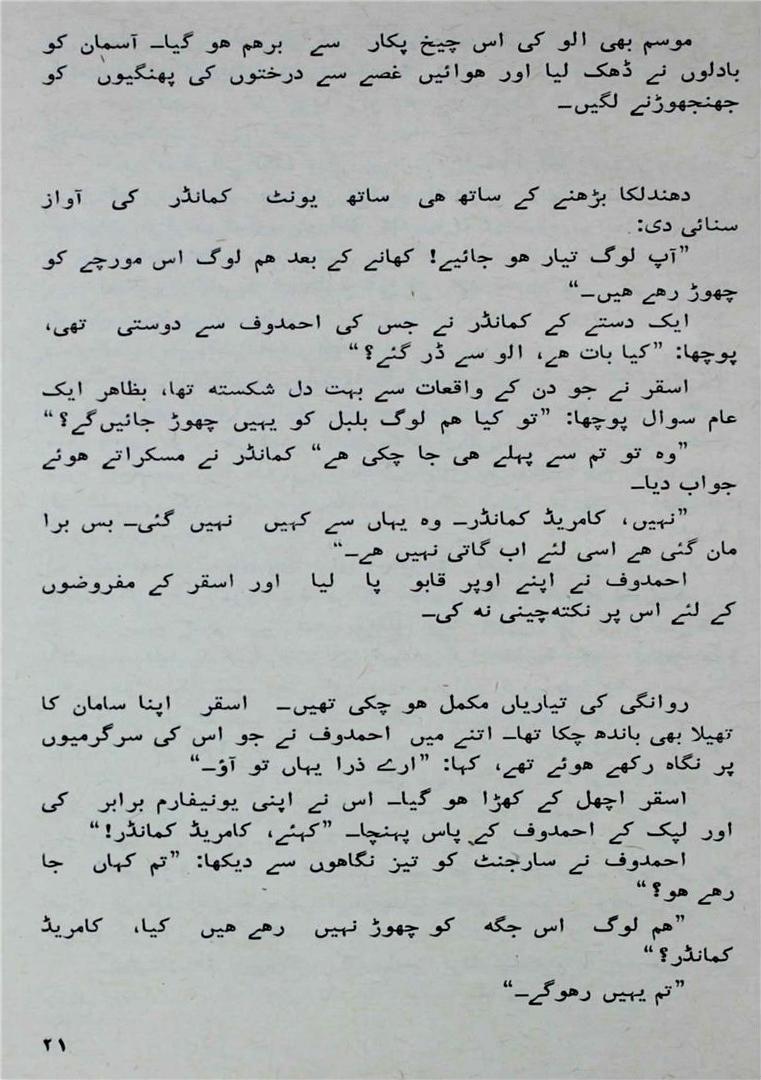 موسم بھی الو کی اس چیخ پکار سے برھم ھو گیا۔ آسمان کو
بادلوں نے ڈھک لیا اور ھوائیں غصے سے درختوں کی پھنگیوں کو
جھنجھوڑنے لگیں۔
دھندلکا بڑھنے کے ساتھ ھی ساتھ یونٹ کمانڈر کی آواز
سنائی دی:
”آپ لوگ تیار ھو جائیے! کھانے کے بعد ھم لوگ اس مورچے کو
چھوڑ رھے ھیں۔“
ایک دستے کے کمانڈر نے جس کی احمدوف سے دوستی تھی،
پوچھا: ”کیا بات ھے، الو سے ڈر گئے؟“
اسقر نے جو دن کے واقعات سے بہت دل شکستہ تھا، بظاھر ایک
عام سوال پوچھا: ”تو کیا ھم لوگ بلبل کو یہیں چھوڑ جائیں گے؟“
”وہ تو تم سے پہلے ھی جا چکی ھے“ کمانڈر نے مسکراتے ھوئے
جواب دیا۔
”نہیں، کامریڈ کمانڈر۔ وہ یہاں سے کہیں نہیں گئی۔ بس برا
مان گئی ھے اسی لئے اب گاتی نہیں ھے۔“
احمدوف نے اپنے اوپر قابو پا لیا اور اسقر کے مفروضوں
کے لئے اس پر نکتہ چینی نہ کی۔
روانگی کی تیاریاں مکمل ھو چکی تھیں۔ اسقر اپنا سامان کا
تھیلا بھی باندھ چکا تھا۔ اتنے میں احمدوف نے جو اس کی سرگرمیوں
پر نگاہ رکھے ھوئے تھے، کہا: ”ارے ذرا یہاں تو آؤ۔“
اسقر اچھل کے کھڑا ھو گیا۔ اس نے اپنی یونیفارم برابر کی
اور لپک کے احمدوف کے پاس پہنچا۔ ”کہئے، کامریڈ کمانڈر!“
احمدوف نے سارجنٹ کو تیز نگاھوں سے دیکھا: ”تم کہاں جا
رھے ھو؟“
”ھم لوگ اس جگہ کو چھوڑ نہیں رھے ھیں کیا، کامریڈ
کمانڈر؟“
”تم یہیں رھوگے۔“
۲۱